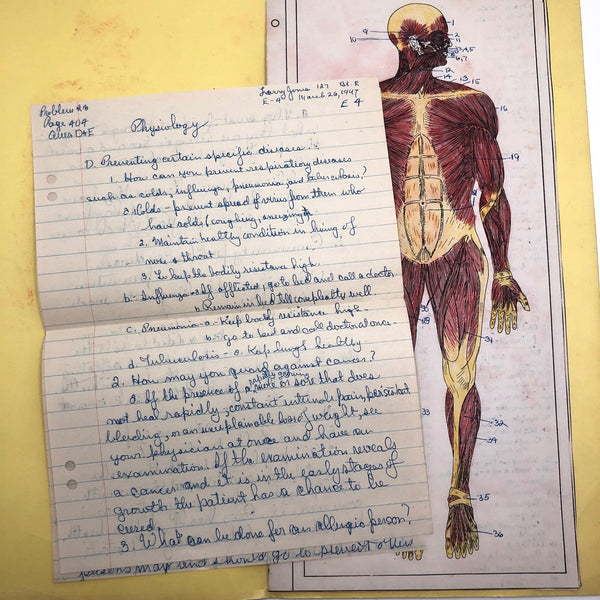 Problem #8
Page 404
Ques D&E
Larry Jones 127 Bl. E
E-4 March 20, 1947
E 4
Physiology
D. Preventing certain specific diseases:
1. How can you prevent respiratory diseases
such as colds, influenza, pneumonia, and tuberculosis?
a. Colds - prevent spread of virus from them who
have colds (coughing, sneezing
2. Maintain healthy condition in lining of
nose & throat
3. To keep the bodily resistance high.
b. Influenza - a. If afflicted, go to bed and call a doctor
b. Remain in bed till completly well
c. Pneumonia - a. Keep body resistance high.
b. go to bed and call doctor at once.
d. Tuberculosis - a. Keep lungs healthy.
2. How may you guard against cancer?
a. If the presence of a rapidly growing mole or sore that does
not heal rapidly, constant internal pain, persistant
bleeding, or an unexplainable loss of weight, see
your physician at once and have an
examination. If the examination reveals
a cancer and it is in the early stages of
growth the patient has a chance to be
cured.
3. What can be done for an allergic person?
persons may and should go to prevent
1
2
9
10
6,7
12
13
14
15
16
19
31
33
32
34
35
36